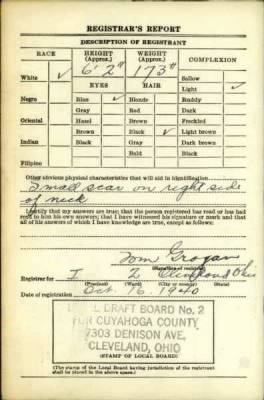 REGISTRAR'S REPORT
DESCRIPTION OF REGISTRANT
RACE HEIGHT (Approx.) WEIGHT (Approx.) COMPLEXION
6' 2" 173#
White ✓ Sallow
EYES HAIR Light ✓
Negro Blue ✓ Blonde Ruddy
Gray Red Dark
Oriental Hazel Brown Freckled
Brown Black ✓ Light brown
Indian Black Gray Dark brown
Bald Black
Filipino
Other obvious physical characteristics that will aid in identification
Small scar on right side
of neck
I certify that my answers are true; that the person registered has read or has had
read to him his own answers; that I have witnessed his signature or mark and that
all of his answers of which I have knowledge are true, except as follows:
Tom Grogan
(Signature of registrar)
Registrar for I 2 Cleveland Ohio
(Precinct) (Ward)
Date of registration Oct. 16 1940
LOCAL DRAFT BOARD No. 2
FOR CUYAHOGA COUNTY
7303 DENISON AVE,
CLEVELAND, OHIO
(STAMP OF LOCAL BOARD)
(The stamp of the Local Board having jurisdiction of the registrant
shall be placed in the above space.)